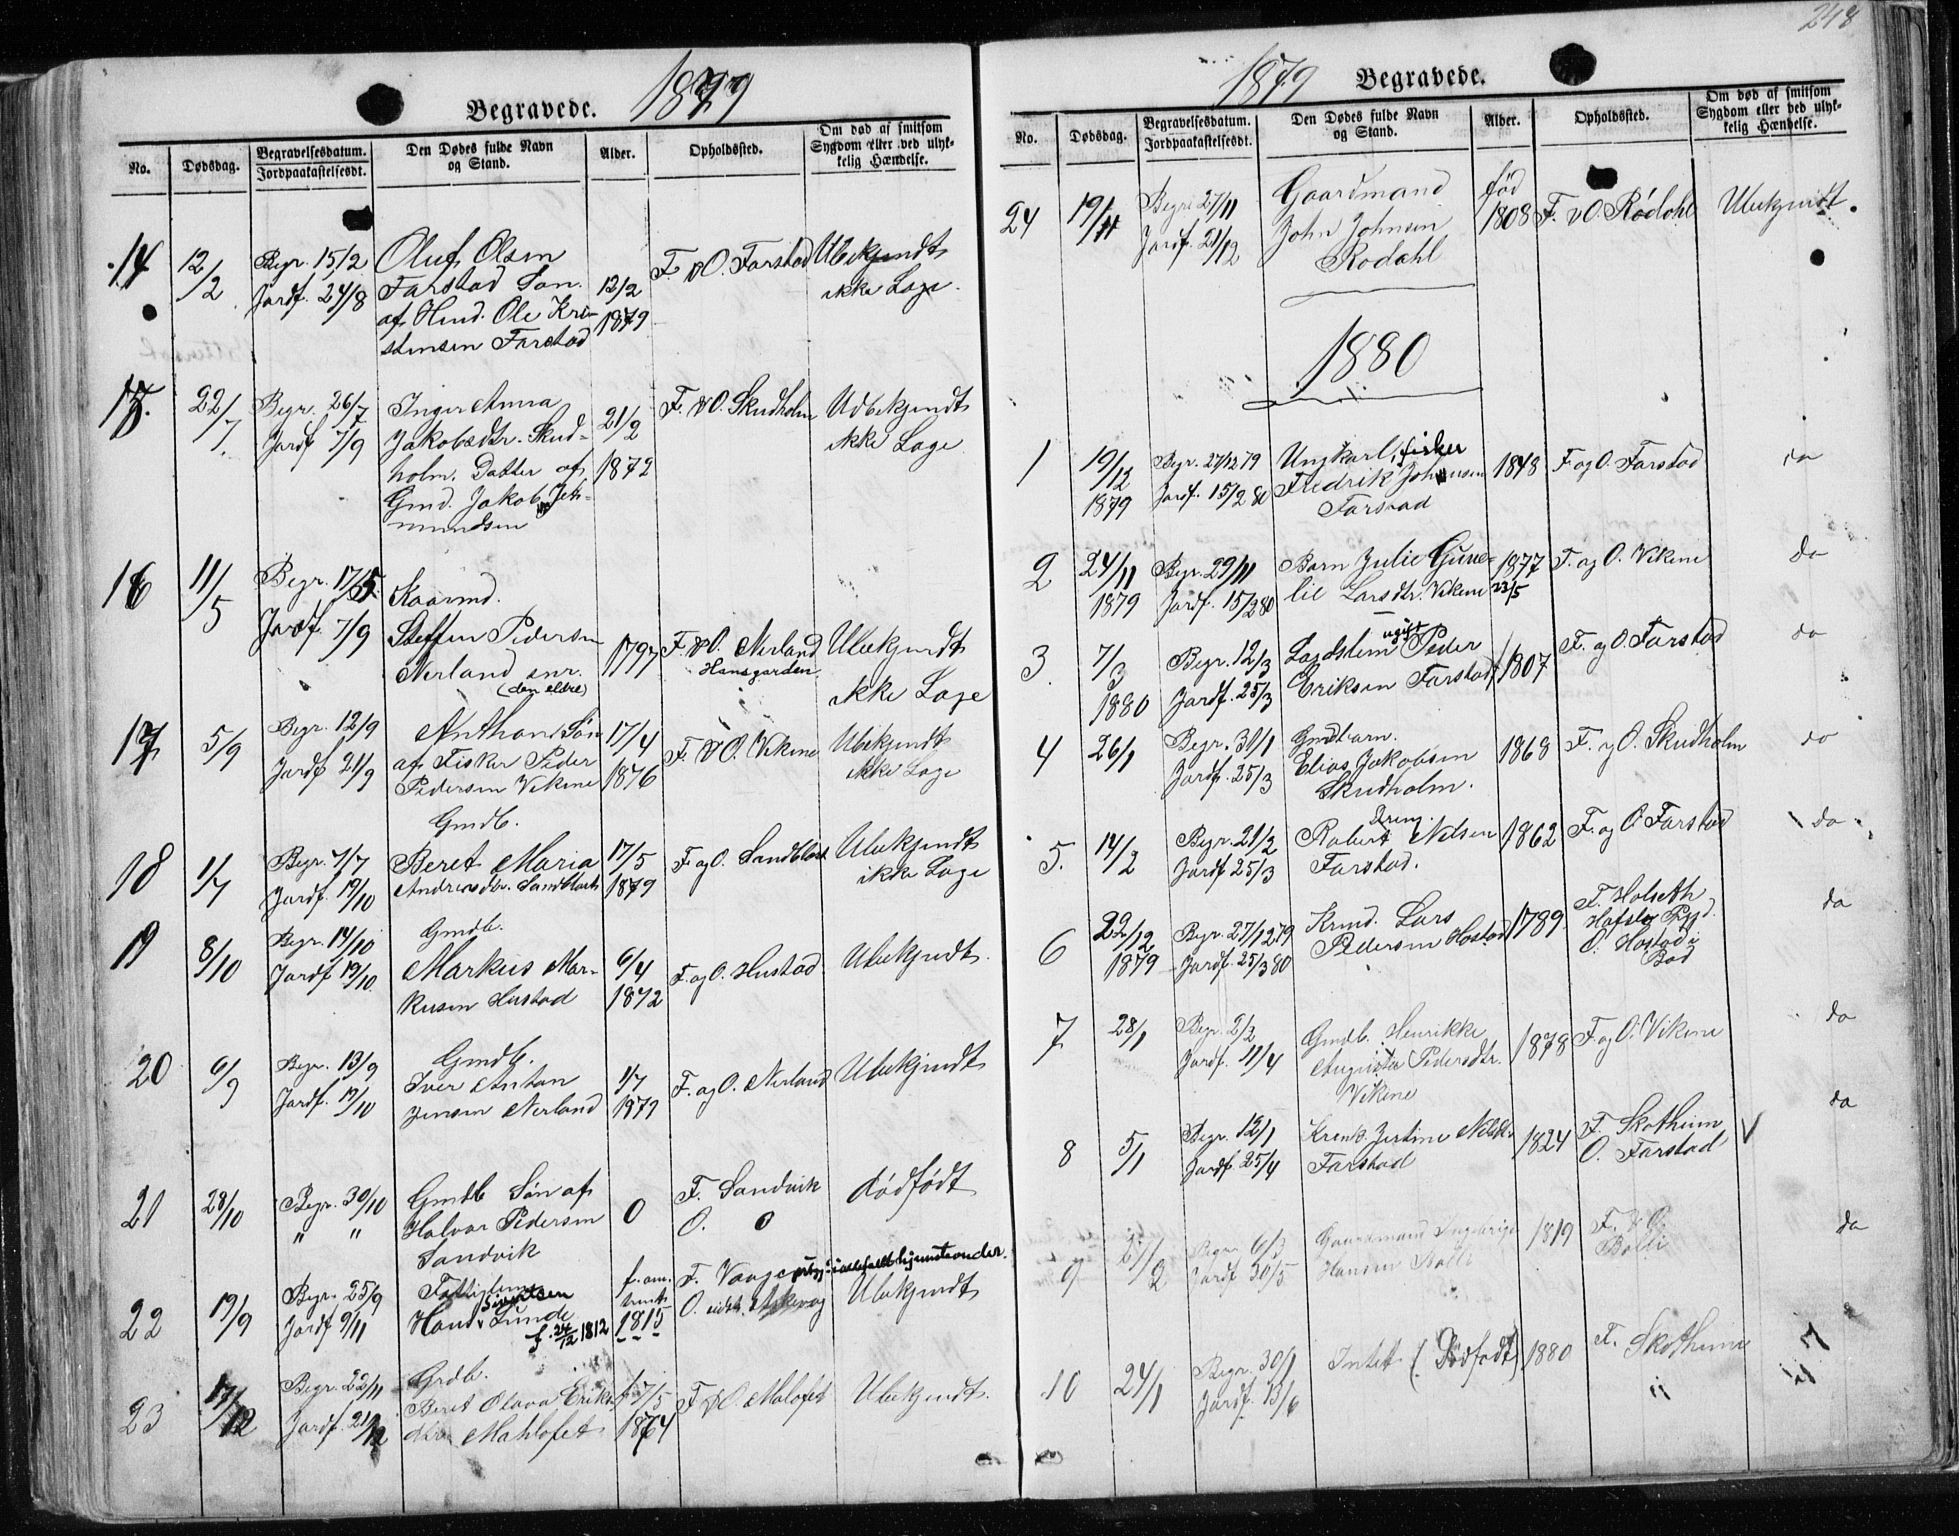 248
Begravede. 1879
No.
Dødsdag.
Begravelsesdatum.
Jordpaakastelsesdt.
Den Dødes fulde Navn
og Stand.
Alder.
Opholdssted.
Om død af smitsom
Sygdom eller ved ulyk-
kelig Hændelse.
14
12/2
Begr. 15/2
Jordf. 24/8
Oluf Olsen
Farstad Søn
af Hmd. Ole Kri-
stensen Farstad
12/2
1879
F. & O. Farstad
Ubekjendt
ikke Læge.
15.
22/7.
Begr. 26/7
Jordf 7/9
Inger Anna
Jakobsdtr. Skud-
holm. Datter af
Gmd. Jakob Jet-
mundsen
21/2
1872
F. & O. Skudholm
Udbekjendt
ikke Læge
16
11/5
Begr. 17/5.
Jordf. 7/9
Kaarmd.
Steffen Pedersen
Nerland snr.
(den eldre)
1797
F. & O. Nerland
Hansgarden
Ubekjendt
ikke Læge
17
5/9
Begr. 12/9
Jordf 21/9
Anthon Søn
af Fisker Peder
Pedersen Vikene
17/4
1876
F. & O. Vikene
Ubekjendt
ikke Læge
18
1/7
Begr. 7/7
Jordf. 19/10
Gmdb.
Beret Maria
Andreasdtr. Sandblaat
17/5
1879
F. og O. Sandblaat
Ubekjendt
ikke Læge
19
8/10
Begr. 14/10
Jordf 19/10
Gmdb.
Markus Mar-
kusen Hustad
6/4
1872
F. og O. Hustad
Ubekjendt.
20
6/9
Begr. 13/9
Jordf. 19/10
Gmdb.
Iver Antan
Jensen Nerland
1/7
1879
F. og O. Nerland
Ubekjendt
21
28/10
Begr. 30/10
" "
Gmdb Søn af
Halvor Pedersen
Sandvik
0
F. Sandvik
O. 0
dødfødt
22
19/9
Begr. 25/9
Jordf 9/11
Fattiglem
Sivertsen
Hans Lunde
f. 24/12 1812
f. om-
trent
1815
F. Vaage
O.
Ubekjendt
23
17/12
Begr. 22/11
Jordf. 21/12
Grdb.
Beret Olava Eriks
dtr Mahlefet
f 7/5
1874
F & O. Malefet
Ubekjendt.
1879 Begravede.
No.
Dødsdag.
Begravelsesdatum.
Jordpaakastelsesdt.
Den Dødes fulde Navn
og Stand.
Alder.
Opholdssted.
Om død af smitsom
Sygdom eller ved ulyk-
kelig Hændelse.
24
19/11
Begr. 27/11
Jordf. 21/12
Gaardmand
John Johnsen
Rødahl
fød
1808
F. & O. Rødahl
Ubekjendt.
1880
1
19/12
1879
Begr. 27/12 79
Jordf. 15/2 80
Ungkarl, fisker
Fredrik Johansen
Farstad
1848
F og O. Farstad
do
2
24/11
1879
Begr. 29/11
Jordf. 15/2 80
Barn Julie Gure-
lie Larsdtr. Vikene
1877
23/5
F. og O. Vikene
do
3
7/3
1880
Begr. 12/3
Jordf. 25/3
ugift
Lægdslem Peder
Eriksen Farstad
1807
F. og O. Farstad
do
4
26/1
Begr. 31/1
Jordf. 25/3
Gmdbarn.
Elias Jakobsen
Skudholm.
1868
F. og O. Skudholm
do
5.
14/2
Begr. 21/2
Jordf 25/3
Dreng.
Robert Nilsen
Farstad.
1862
F. og O Farstad
do
6
22/12
1879
Begr. 27/12 79
Jordf. 25/3 80
Krmd. Lars
Pedersen Hostad
1789
F. Holseth
O. Hostad i
Bod
do
7
28/1
Begr. 2/2
Jordf. 11/4
Gmdb. Henrikke
Augusta Pedersdtr.
Vikene
1878
F og O. Vikene
do
8
5/1
Begr. 12/1
Jordf. 25/4
Jertine Nilsdtr.
Farstad
1824
F. Skotheim
O. Farstad
V
do
9
Begr. 6/3
Jordf 30/5
Gaardmand Ingebrigt
Hansen Bolli
1819
F. & O.
Bolli
do
10
24/1
Begr. 30/1
Jordf. 13/6
Intet (Dødfødt)
1880
F. Skotheim
"